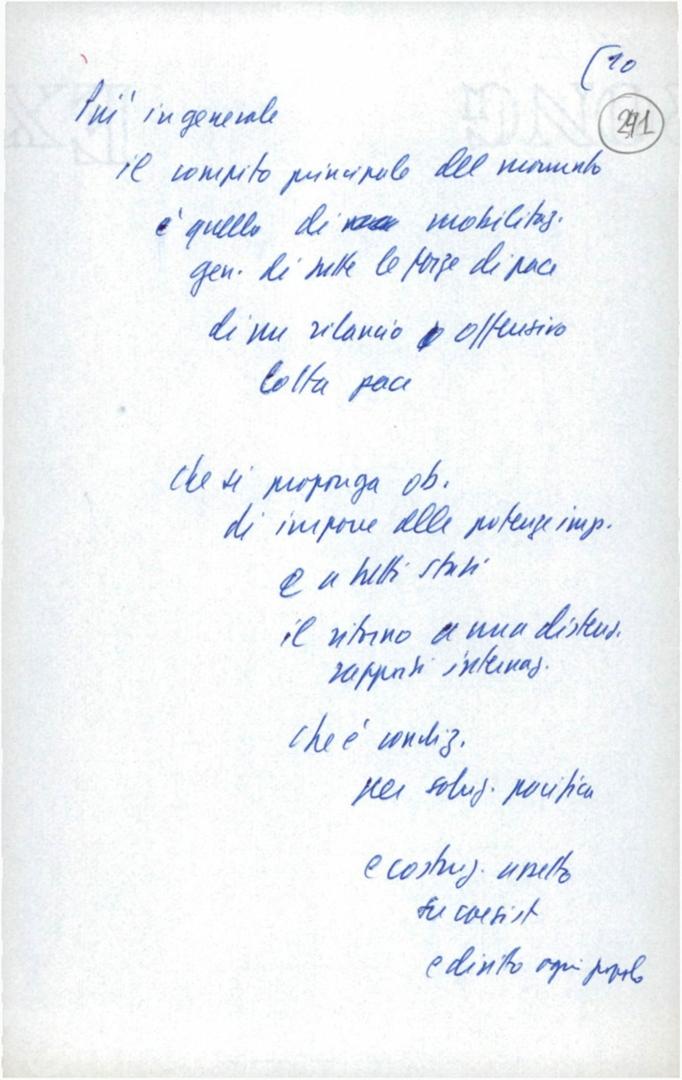 (10
241
Più in generale
il compito principale del momento
è quello di mobilitaz.
gen. di tutte le forze di pace
di un rilancio offensivo
lotta pace
che si proponga ob.
di imporre alle potenze imp.
e a tutti stati
il ritorno a una distens.
rapporti internaz.
che è condiz.
per soluz. pacifica
e costruz. assetto
su coesist
e diritto ogni popolo